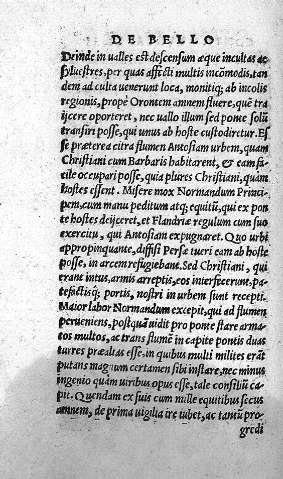 DE BELLO
Deinde in ualles est descensum æque incultas ac
syluestres, per quas affecti multis incōmodis, tan
dem ad culta uenerunt loca, monitiq; ab incolis
regionis, propè Orontem amnem fluere, quē tra
ijcere oporteret, nec uallo illum sed ponte solū
transiri posse, qui unus ab hoste custodiretur. Es
se præterea citra flumen Antosiam urbem, quam
Christiani cum Barbaris habitarent, & eam fa⸗
cile occupari posse, quia plures Christiani, quàm
hostes essent. Misere mox Normandum Princi⸗
pem, cum manu peditum atq; equitū, qui ex pon
te hostes deijceret, et Flandriæ regulum cum suo
exercitu, qui Antosiam expugnaret. Quo urbi
appropinquante, diffisi Persæ tueri eam ab hoste
posse, in arcem refugiebant. Sed Christiani, qui
erant intus, armis arreptis, eos interfecerunt, pa⸗
tefactisq; portis, nostri in urbem sunt recepti.
Maior labor Normandum excepit, qui ad flumen
perueniens, postquā uidit pro ponte stare arma⸗
tos multos, ac trans flumē in capite pontis duas
turres præaltas esse, in quibus multi milites erāt
putans magnum certamen sibi instare, nec minus
ingenio quàm uiribus opus esse, tale consiliū ca⸗
pit. Quendam ex suis cum nulle equitibus secus
amnem, de prima uigilia ire iubet, ac tantū pro⸗
gredi